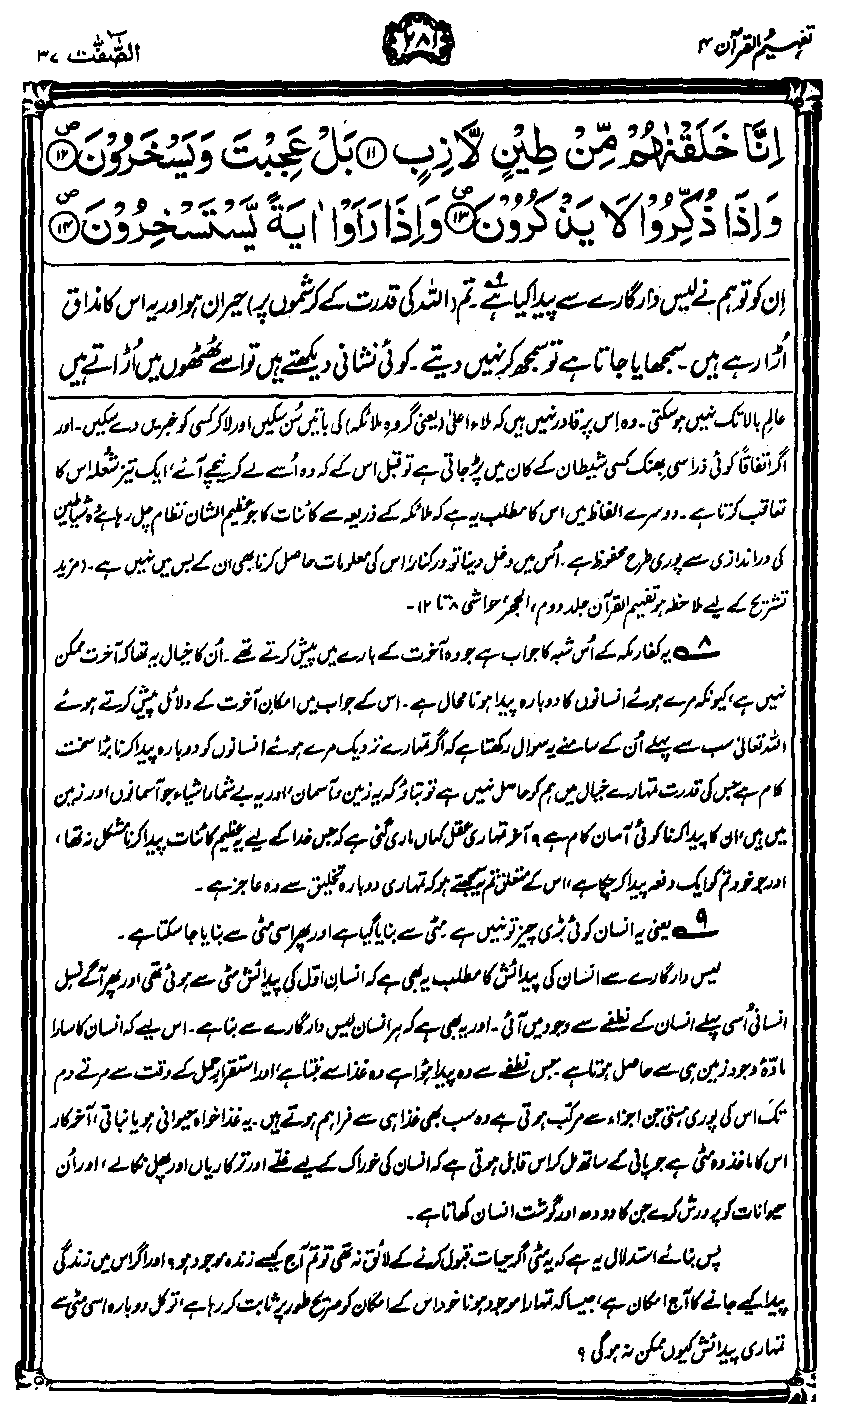 تفہیم القرآن ۴
۲۸۱
الصّٰٓفّٰت ۳۷
اِنَّا خَلَقْنٰهُمْ مِّنْ طِیْنٍ لَّازِبٍ ۝۱۱ بَلْ عَجِبْتَ وَیَسْخَرُوْنَ ۝۱۲ ص
وَاِذَا ذُكِّرُوْا لَا یَذْكُرُوْنَ ۝۱۳ ص وَاِذَا رَاَوْا اٰیَةً یَّسْتَسْخِرُوْنَ ۝۱۴ ص
اِن کو تو ہم نے لیس دار گارے سے پیدا کیا ہے۹۔ تم (اللہ کی قدرت کے کرشموں پر) حیران ہو اور یہ اس کا مذاق
اُڑا رہے ہیں۔ سمجھایا جاتا ہے تو سمجھ کر نہیں دیتے۔ کوئی نشانی دیکھتے ہیں تو اسے ٹھٹھوں میں اُڑاتے ہیں
عالمِ بالا تک نہیں ہو سکتی۔ وہ اِس پر قادر نہیں ہیں کہ ملاءِ اعلیٰ (یعنی گروہِ ملائکہ) کی باتیں سُن سکیں اور لا کر کسی کو خبریں دے سکیں۔ اور
اگر اتفاقاً کوئی ذرا سی بھنک کسی شیطان کے کان میں پڑ جاتی ہے تو قبل اس کے کہ وہ اُسے لے کر نیچے آئے، ایک تیز شعلہ اس کا
تعاقب کرتا ہے۔ دوسرے الفاظ میں اس کا مطلب یہ ہے کہ ملائکہ کے ذریعہ سے کائنات کا جو عظیم الشان نظام چل رہا ہے وہ شیاطین
کی دراندازی سے پوری طرح محفوظ ہے۔ اُس میں دخل دینا تو درکنار، اس کی معلومات حاصل کرنا بھی ان کے بس میں نہیں ہے۔ (مزید
تشریح کے لیے ملاحظہ ہو تفہیم القرآن جلد دوم، الحجر، حواشی ۸ تا ۱۲۔
۸ یہ کفارِ مکہ کے اُس شبہ کا جواب ہے جو وہ آخرت کے بارے میں پیش کرتے تھے۔ اُن کا خیال یہ تھا کہ آخرت ممکن
نہیں ہے، کیونکہ مرے ہوئے انسانوں کا دوبارہ پیدا ہونا محال ہے۔ اس کے جواب میں امکانِ آخرت کے دلائل پیش کرتے ہوئے
اللہ تعالیٰ سب سے پہلے اُن کے سامنے یہ سوال رکھتا ہے کہ اگر تمہارے نزدیک مرے ہوئے انسانوں کو دوبارہ پیدا کرنا بڑا سخت
کام ہے جس کی قدرت تمہارے خیال میں ہم کو حاصل نہیں ہے تو بتاؤ کہ یہ زمین و آسمان، اور یہ بے شمار اشیاء جو آسمانوں اور زمین
میں ہیں، ان کا پیدا کرنا کوئی آسان کام ہے؟ آخر تمہاری عقل کہاں ماری گئی ہے کہ جس خدا کے لیے یہ عظیم کائنات پیدا کرنا مشکل نہ تھا،
اور جو خود تم کو ایک دفعہ پیدا کر چکا ہے، اس کے متعلق تم سمجھتے ہو کہ تمہاری دوبارہ تخلیق سے وہ عاجز ہے۔
۹ یعنی یہ انسان کوئی بڑی چیز تو نہیں ہے۔ مٹی سے بنایا گیا ہے اور پھر اسی مٹی سے بنایا جا سکتا ہے۔
لیس دار گارے سے انسان کی پیدائش کا مطلب یہ بھی ہے کہ انسانِ اول کی پیدائش مٹی سے ہوئی تھی اور پھر آگے نسلِ
انسانی اُسی پہلے انسان کے نطفے سے وجود میں آئی۔ اور یہ بھی ہے کہ ہر انسان لیس دار گارے سے بنا ہے۔ اس لیے کہ انسان کا سارا
مادّۂ وجود زمین ہی سے حاصل ہوتا ہے۔ جس نطفے سے وہ پیدا ہوا ہے وہ غذا سے بنتا ہے، اور استقرارِ حمل کے وقت سے مرتے دم
تک اس کی پوری ہستی جن اجزاء سے مرکب ہوتی ہے وہ سب بھی غذا ہی سے فراہم ہوتے ہیں۔ یہ غذا خواہ حیوانی ہو یا نباتی، آخر کار
اس کا ماخذ وہ مٹی ہے جو پانی کے ساتھ مل کر اس قابل ہوتی ہے کہ انسان کی خوراک کے لیے غلے اور ترکاریاں اور پھل نکالے، اور اُن
حیوانات کو پرورش کرے جن کا دودھ اور گوشت انسان کھاتا ہے۔
پس بنائے استدلال یہ ہے کہ یہ مٹی اگر حیات قبول کرنے کے لائق نہ تھی تو تم آج کیسے زندہ موجود ہو؟ اور اگر اس میں زندگی
پیدا کیے جانے کا آج امکان ہے، جیسا کہ تمہارا موجود ہونا خود اس کے امکان کو صریح طور پر ثابت کر رہا ہے، تو کل دوبارہ اسی مٹی سے
تمہاری پیدائش کیوں ممکن نہ ہوگی؟